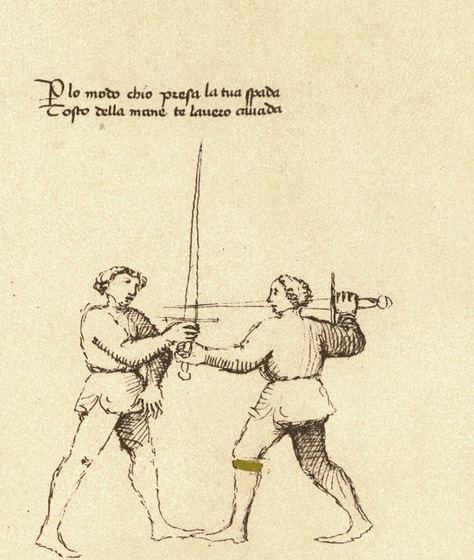 P lo modo chio presa la tua spada
Tosto della mane te lavero cavada